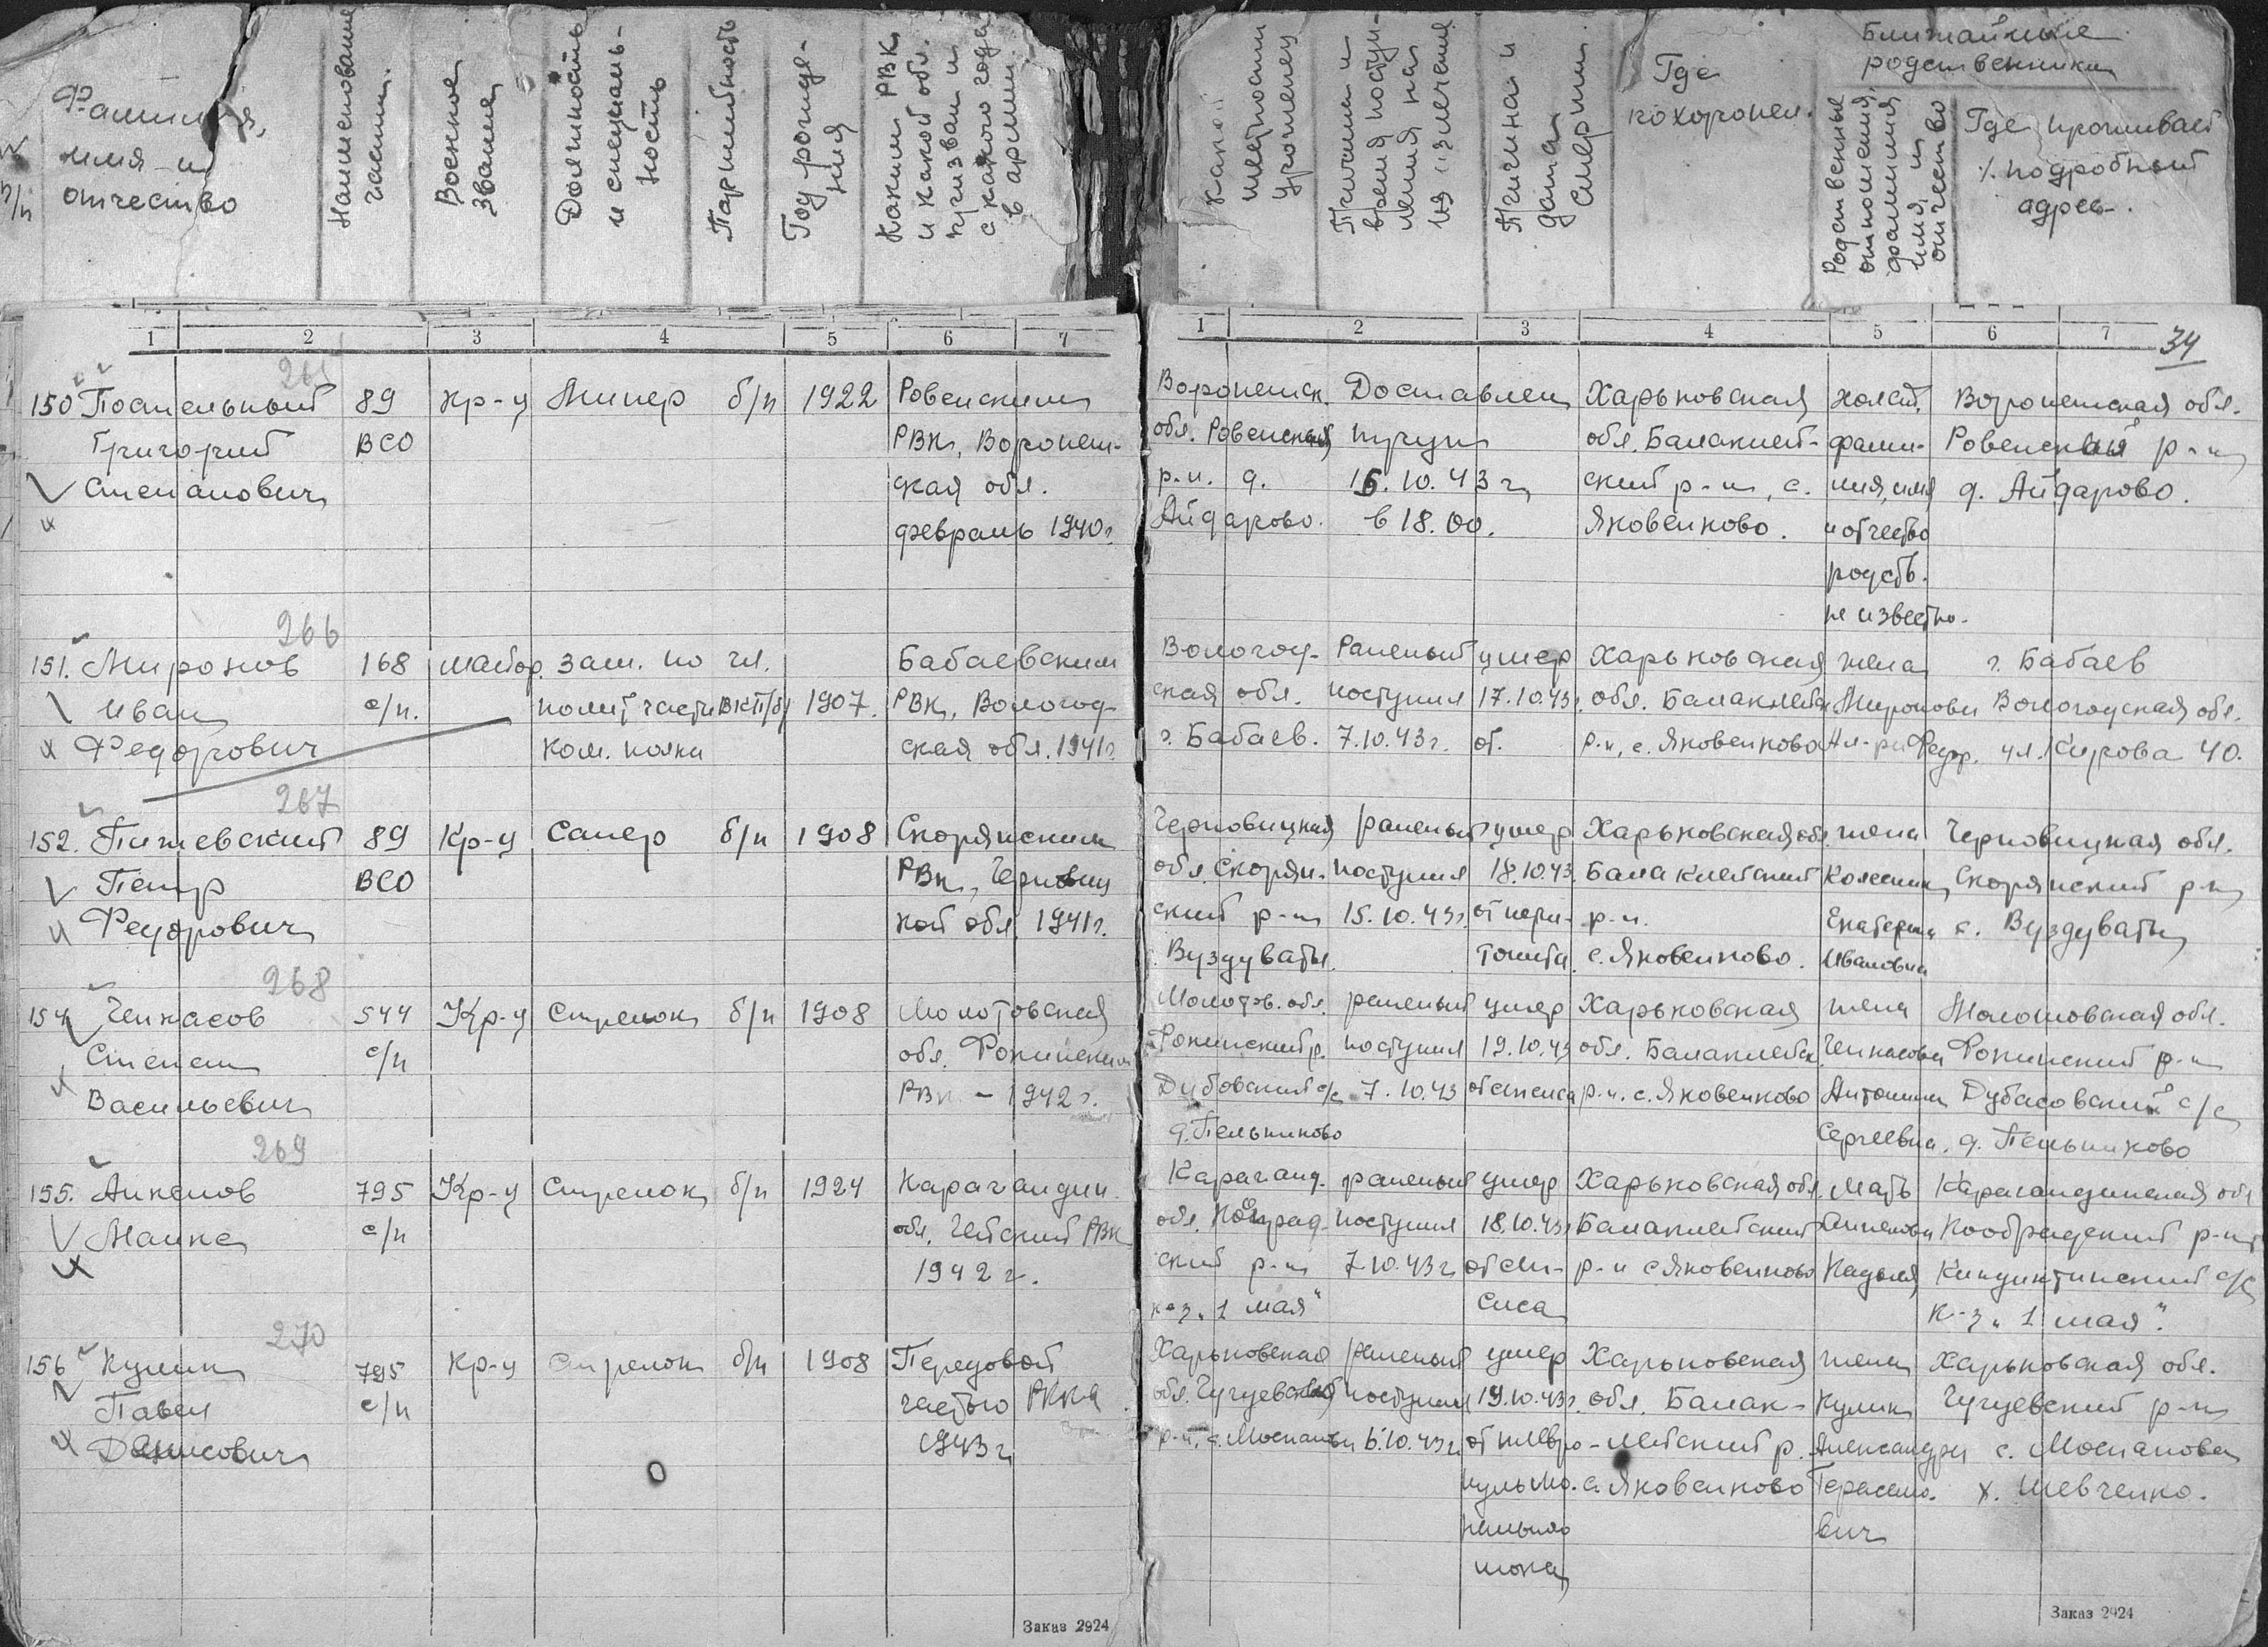 № п/п
Фамилия, имя и отчество
Наименование части
Военное звание
Должность и специальность
Партийность
Год рождения
Каким РВК и какой обл. призван и с какого года в армии
Какой местности уроженец
Причина и время поступления на излечение
Причина и дата смерти
Где похоронен.
Ближайшие родственники
Родственные отношения, фамилия имя и отчество
Где проживает подробный адрес.
1 2 3 4 5 6 7
1 2 3 4 5 6 7 34
265
150 Постельный 89 кр-ц Минер б/п 1922 Ровенским
Григорий ВСО РВК, Воронеж-
Степанович ская обл.
февраль 1940г.
Воронежск. Доставлен Харьковская холост. Воронежская обл.
обл. Ровенский трупом обл. Балаклей- фами- Ровенский р-н
р-н. д. 16.10.43г. ский р-н, с. лия, имя д. Айдарово.
Айдарово. в 18.00. Яковенково. и отчество
родств.
не известно.
266
151. Миронов 168 майор. зам. по чл. Бабаевским
Иван с/п. полит части ВКП/б/ 1907. РВК, Вологод
Федорович ком. полка ская обл. 1941г.
Вологод- Раненый умер Харьковская жена г. Бабаев
ская обл. поступил 17.10.43г. обл. Балаклейск Миронова Вологодская обл.
г. Бабаев. 7.10.43г. от. р-н, с. Яковенково Ал-ра Федор. ул. Кирова 40.
267
152. Пижевский 89 Кр-ц Сапер б/п 1908 Скорянским
Петр ВСО РВК, Черновиц
Федорович кой обл. 1941г.
Черновицкая раненый умер Харьковская обл. жена Черновицкая обл.
обл. Скорян- поступил 18.10.43. Балаклейский Колесник Скорянский р-н
ский р-н 15.10.43г. от пери- р-н. Екатерина с. Вуздуваты
Вуздуваты. тонита. с. Яковенково. Ивановна
268
154 Чепкасов 544 Кр-ц Стрелок б/п 1908 Молотовская
Степан с/п обл. Фокинский
Васильевич РВК - 1942г.
Молотов. обл. раненый умер Харьковская жена Молотовская обл.
Фокинский р. поступил 19.10.43 обл. Балаклейск Чепкасова Фокинский р-н
Дубовский с/с 7.10.43 от сепсиса р-н. с. Яковенково Антонина Дубасовский с/с
д. Пельниково Сергеевна. д. Пельниково
269
155. Анкенов 795 Кр-ц Стрелок б/п 1924 Карагандин.
с/п обл. Четский РВК
1942г.
Караганд. раненый умер Харьковская обл. мать Карагандинская обл
обл. поступил 18.10.43г Балаклейский р-н
ский р-н 7.10.43г от сеп- р-н с Яковенково с/с
к-з „1 мая" сиса к-з „1 мая".
270
156 Кулик 795 кр-ц стрелок б/п 1908 Передовой
Павел с/п частью РККА
Денисович 1943г
Харьковская раненый умер Харьковская жена Харьковская обл.
обл. Чугуевский поступил 19.10.43г. обл. Балак- Кулик Чугуевский р-н
р-н, с. Моспанова 6.10.43г. от плевро- лейский р. Александра с. Моспанова
пульмо. с. Яковенково Герасимо. х. Шевченко.
нального вич
шока
Заказ 2924
Заказ 2924